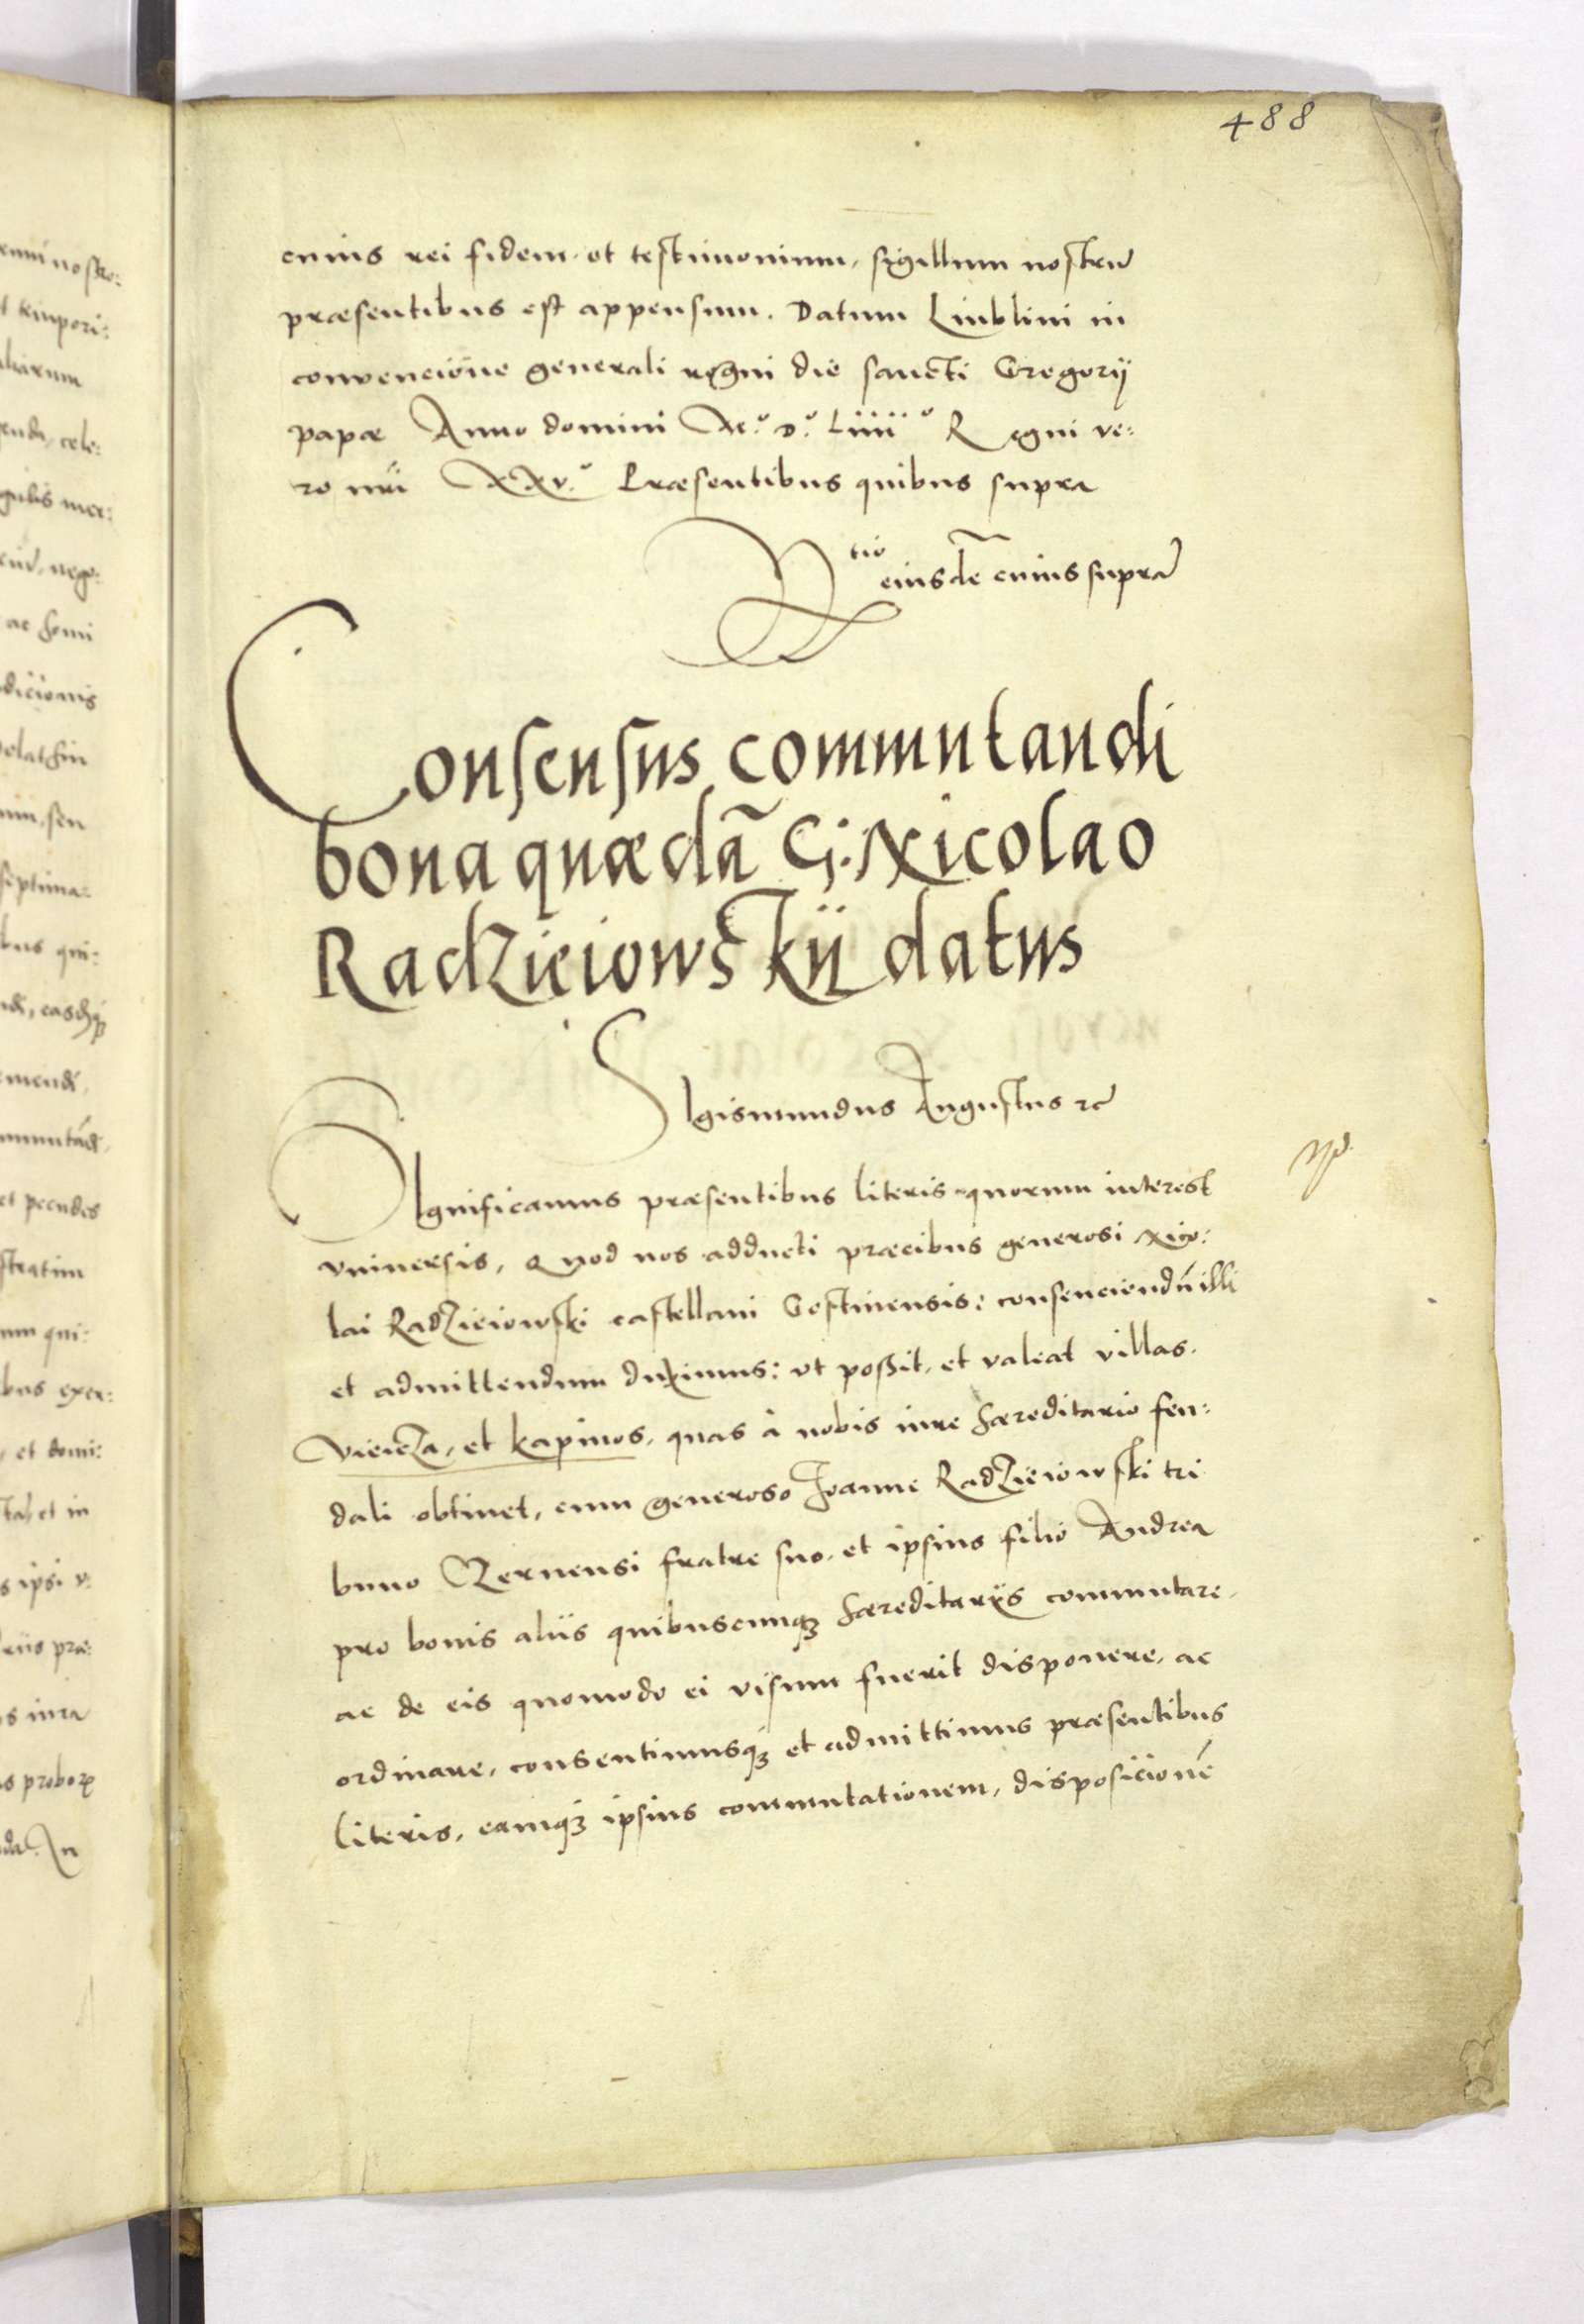 488
cuius rei fidem et testimonium, sigillum nostrū
præsentibus est appensum. Datum Liublini in
convencione generali regni die sancti Gregorij
papæ Anno domini Mº. Dº. Liiiiº Regni ve:
ro nr̄i XXvº. Præsentibus quibus supra
Rtio eiusdē cuius supra
Consensus commutandi
bona quædā G: Nicolao
Radzieiowskij datus
SIgismundus Augustus &c
SIgnificamus præsentibus literis quorum interest
vniuersis, Quod nos adducti præcibus generosi Nico:
lai Radzieiowski castellani Gostinensis: consenciendū illi
et admittendum duximus: vt possit, et valeat villas
Vieicza, et kapinos, quas à nobis iure hæreditario feu:
dali obtinet, cum generoso Joanne Radzieiowski tri
buno Czernensi fratre suo, et ipsius filio Andrea
pro bonis aliis quibuscumqꝫ hæreditarijs commutare,
ac de eis quomodo ei visum fuerit disponere, ac
ordinare, consentimusqꝫ et admittimus præsentibus
literis, eamqꝫ ipsius commutationem, disposicionē